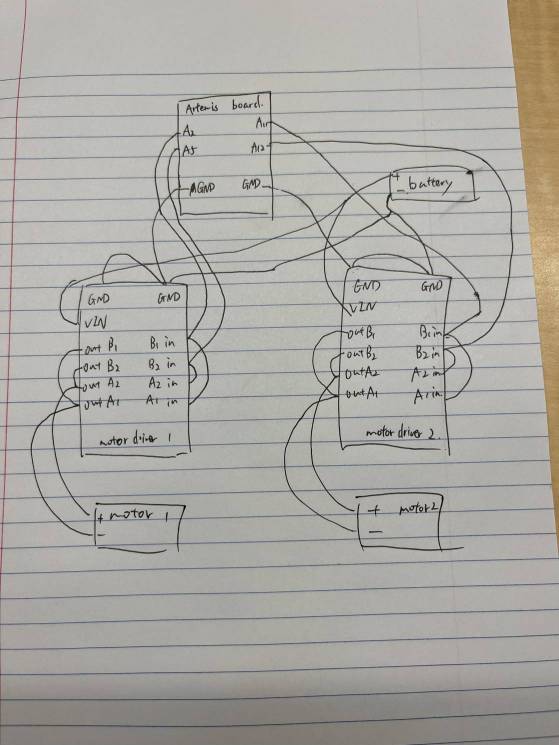 Artemis board.
A2 A11
A5 A12
GND GND
+ battery
-
GND GND
VIN
out B1 B1 in
out B2 B2 in
out A2 A2 in
out A1 A1 in
motor driver 1
GND GND
VIN
out B1 B1 in
out B2 B2 in
out A2 A2 in
out A1 A1 in
motor driver 2.
+ motor 1
-
+ motor 2
-